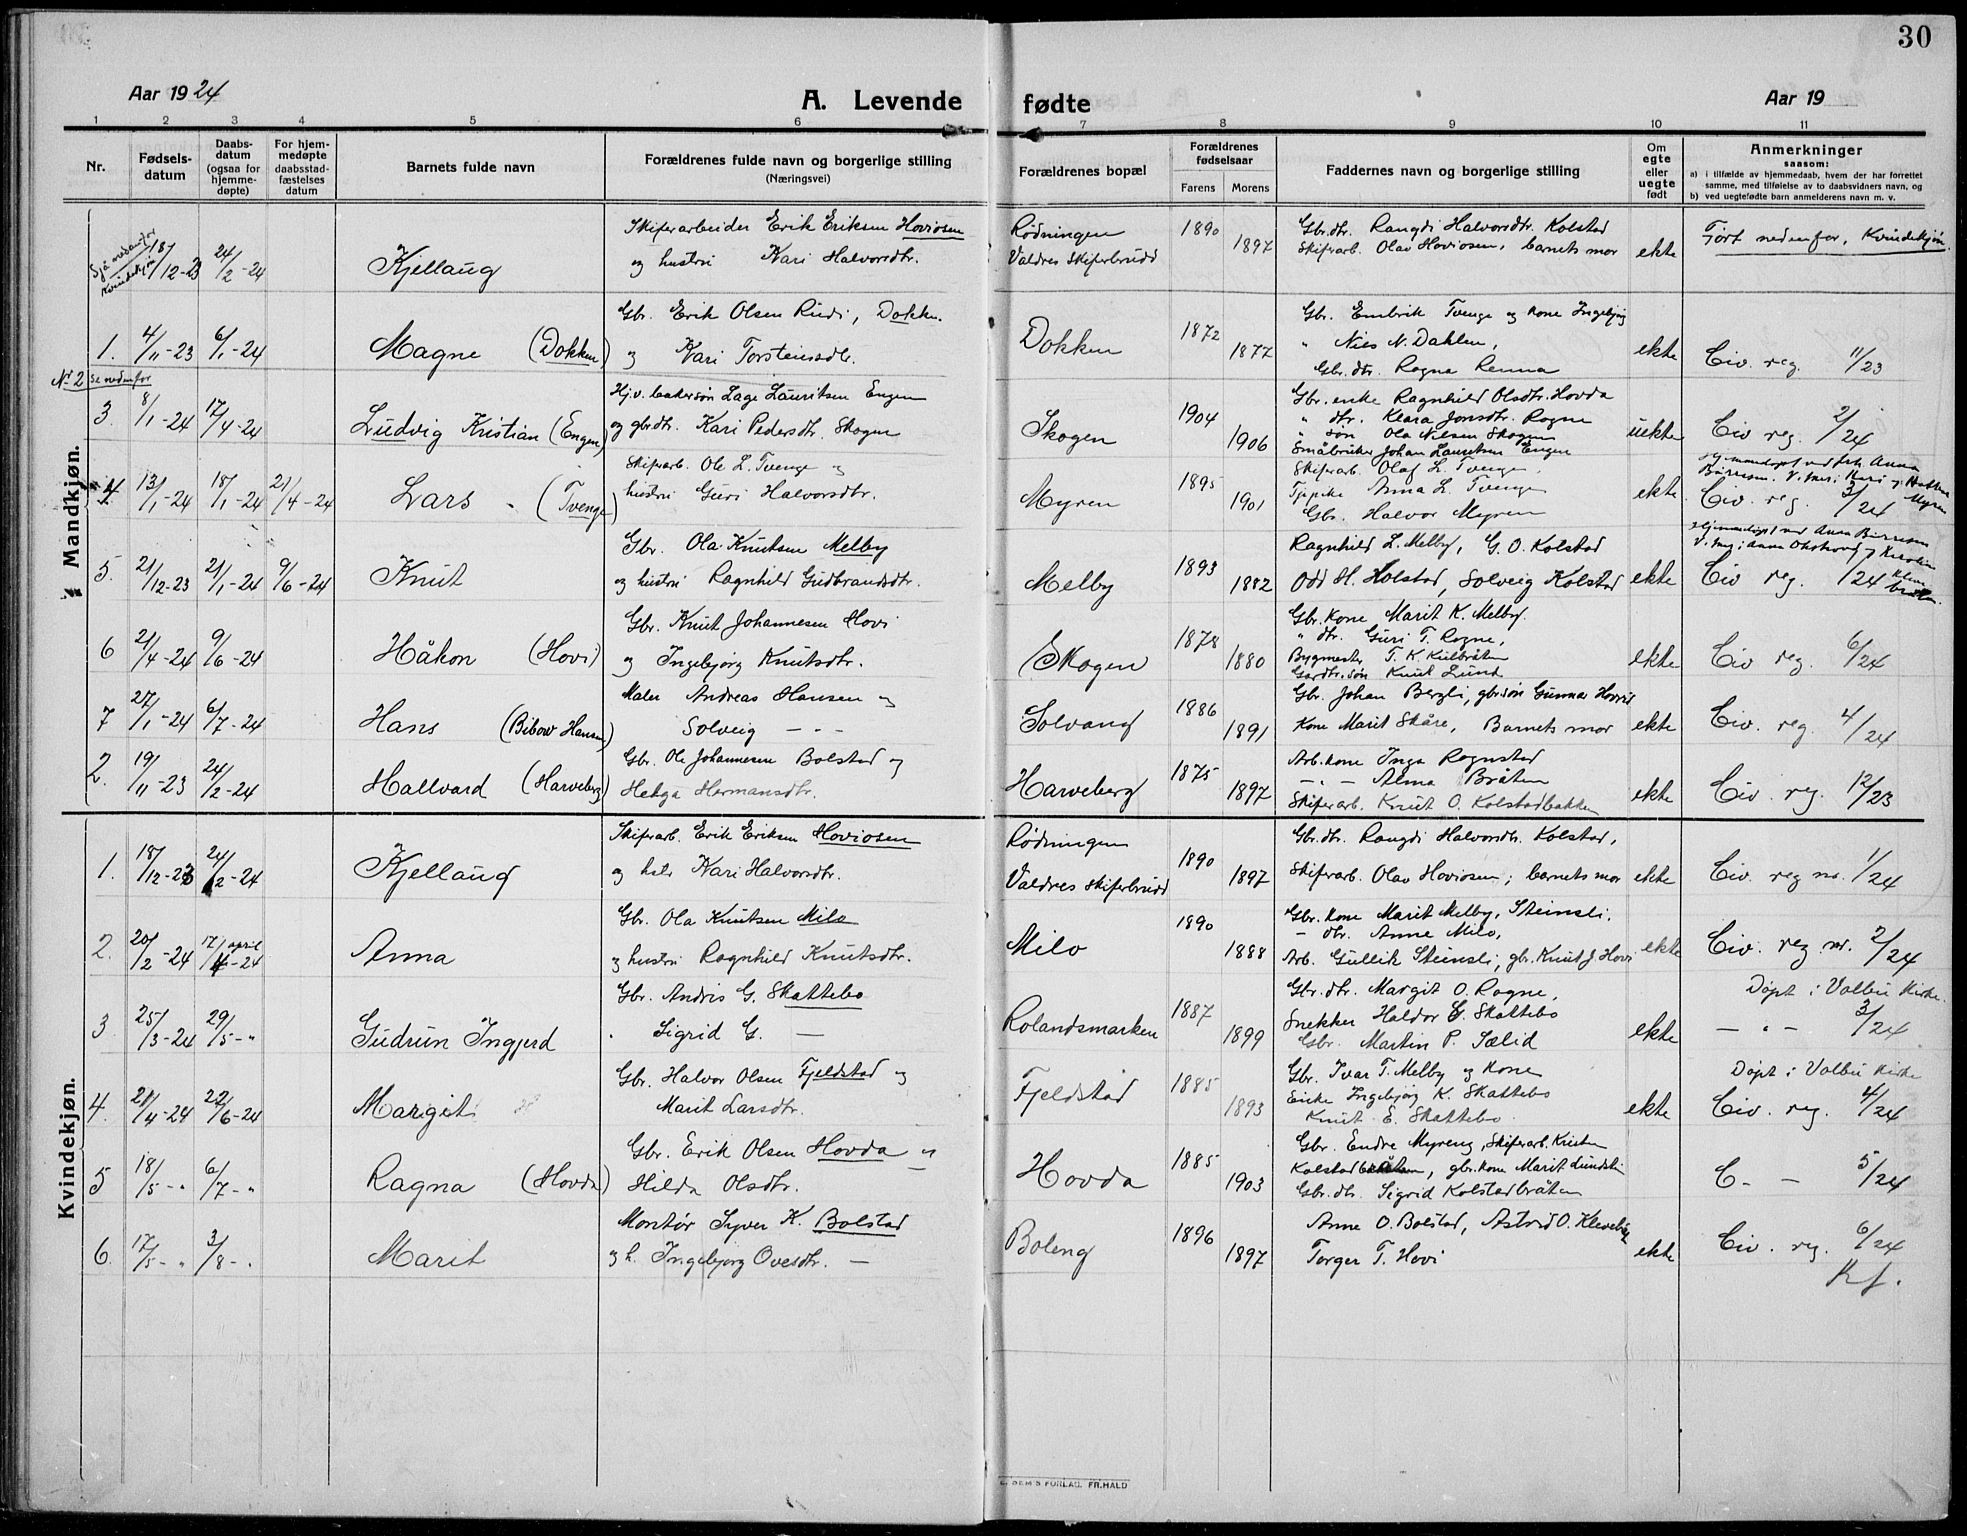 30
Aar 1924
A. Levende fødte
Aar 19
1 2 3 4 5 6 7 8 9 10 11
Nr.
Fødsels-
datum
Daabs-
datum
(ogsaa for
hjemme-
døpte)
For hjem-
medøpte
daabsstad-
fæstelses
datum
Barnets fulde navn
Forældrenes fulde navn og borgerlige stilling
(Næringsvei)
Forældrenes bopæl
Forældrenes
fødselsaar
Farens Morens
Faddernes navn og borgerlige stilling
Om
egte
eller
uegte
født
Anmerkninger
saasom:
a) i tilfælde av hjemmedaab, hvem der har forrettet
samme, med tilføielse av to daabsvidners navn, og
b) ved uegtefødte barn anmelderens navn m. v.
Mandkjøn.
Sjå nedanfor
Kvindekjøn
18/12-23 24/2-24 Kjellaug
Skiferarbeider Erik Eriksen Hoviosen
og hustru Kari Halvorsdtr.
Rødningen
Valdres Skiferbrudd
1890 1897
Gbr.dtr. Rangdi Halvorsdtr. Kolstad
Skiferarb. Olav Hoviosen, barnets mor
ekte
Ført nedenfor, Kvindekjøn.
1. 4/11-23 6/1-24 Magne (Dokken)
Gbr. Erik Olsen Rudi, Dokken.
og Kari Torsteinsdtr.
Dokken
1872 1877
Gbr. Embrik Tvenge og kone Ingebjørg
" Nils N. Dahlen,
Gbr.dtr. Ragna Renna
ekte
Civ. reg. 11/23
Nr 2 se nedenfor
3. 8/1-24 17/4-24 Ludvig Kristian (Engen)
Hj.v. bakersøn Lage Lauritsen Engen
og gbrdtr. Kari Pedersdtr. Skogen
Skogen
1904 1906
Gbr. enke Ragnhild Olsdtr. Hovda
" dtr. Klara Jonsdtr. Rogne
" søn Ola Nilsen Skogen
Småbruker Johan Lauritsen Engen
uekte
Civ. reg. 2/24
4. 13/1-24 18/1-24 21/4-24 Lars (Tvenge)
Skiferarb. Ole L. Tvenge og
hustru Guri Halvorsdtr.
Myren
1895 1901
Skiferarb. Olaf L. Tvenge,
Anna L. Tvenge
Gbr. Halvor Myren
ekte
Hjemmedøpt ved frk. Anna
Civ. reg. 3/24 Myren
5. 21/12-23 21/1-24 9/6-24 Knut
Gbr. Ola Knutsen Melby
og hustru Ragnhild Gudbrandsdtr.
Melby
1893 1882
Ragnhild L. Melby, G. O. Kolstad
Odd H. Holstad, Solveig Kolstad
ekte
Hjemmedøpt ved Anna
Civ reg. 1/24
6 21/4-24 9/6-24 Håkon (Hovi)
Gbr. Knut Johannesen Hovi
og Ingebjørg Knutsdtr.
Skogen
1878 1880
Gbr. kone Marit K. Melby.
" dtr. Guri T. Rogne,
Bygmester T. K. Kulbråten
Gardbr.søn Knut Lund
ekte
Civ reg. 6/24
7 27/1-24 6/7-24 Hans (Bibow Hansen)
Maler Andreas Hansen og
Solveig - " -
Solvang
1886 1891
Gbr. Johan Bergli, gbr.søn Gunnar Hovi
Kone Marit Skåre, Barnets mor
ekte
Civ. reg. 4/24
2. 19/11-23 24/2-24 Hallvard (Harveberg)
Gbr. Ole Johannesen Bolstad og
Helga Hermansdtr.
Harveberg
1875 1897
Arb.kone Inga Rognstad
- " - Alma Bråten
Skiferarb. Knut O. Kolstadbakken
ekte
Civ. reg. 12/23
Kvindekjøn.
1. 18/12-23 24/2-24 Kjellaug
Skiferarb. Erik Eriksen Hoviosen
og hstr Kari Halvorsdtr.
Rødningen
Valdres Skiferbrudd
1890 1897
Gbr.dtr. Rangdi Halvorsdtr. Kolstad,
Skiferarb. Olav Hoviosen; barnets mor
ekte
Civ. reg nr. 1/24
2. 20/2-24 17/4-24 april Anna
Gbr. Ola Knutsen Milo
og hustru Ragnhild Knutsdtr.
Milo
1890 1888
Gbr. kone Marit Melby, Steinsli.
- dtr. Anne Milo,
Arb. Gullik Steinsli, gbr. Knut J. Hovi
ekte
Civ. reg nr. 2/24
3 25/3-24 29/5-" Gudrun Ingjerd
Gbr. Andris G. Skattebo
" Sigrid G. —
Rolandsmarken
1887 1899
Gbr.dtr. Margit O. Rogne,
Snekker Haldor G. Skattebo
Gbr. Martin P. Sælid
ekte
Døpt i Volbu Kirke.
— " — 3/24
4. 21/4-24 22/6-24 Margit
Gbr. Halvor Olsen Fjeldstad og
Marit Larsdtr.
Fjeldstad
1885 1893
Gbr. Ivar T. Melby og kone
Enke Ingebjørg K. Skattebo
Knut E. Skattebo.
ekte
Døpt i Volbu Kirke
Civ. reg. 4/24
5 18/5-" 6/7-" Ragna (Hovda)
Gbr. Erik Olsen Hovda og
Hilda Olsdtr.
Hovda
1885 1903
Gbr. Endre Myreng, Skiferarb. Kristen
Kolstadbråten, gbr.kone Marit Lundsli
Gbr.dtr. Sigrid Kolstadbråten
ekte
C- - 5/24
6. 17/5-" 3/8-" Marit
Montør Syver K. Bolstad
og h. Ingebjørg Ovesdtr. —
Boleng
1896 1897
Anne O. Bolstad, Astrid O. Kleveberg
Torger T. Hovi
ekte
Civ. reg. 6/24
Kf.
E. SEM'S FORLAG, FR.HALD